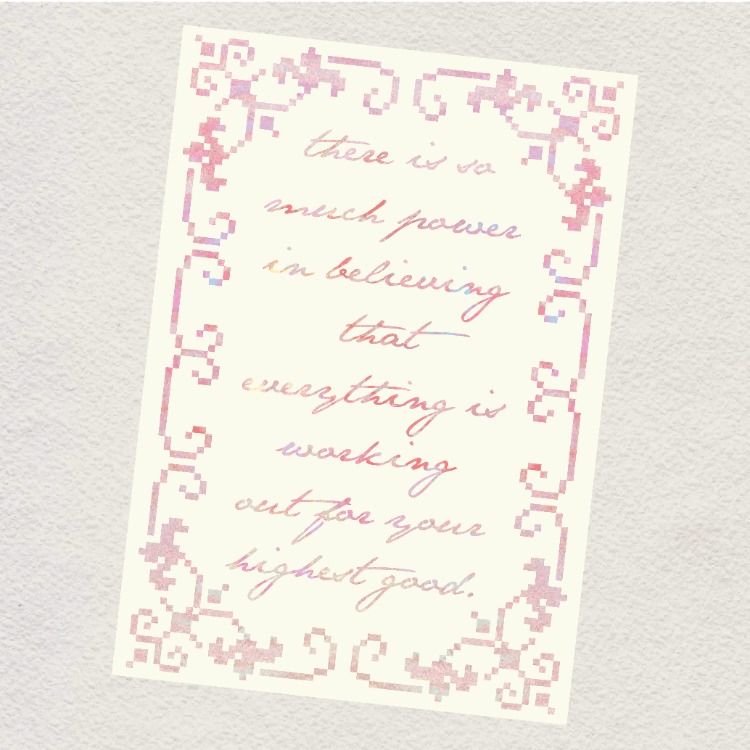 there is so
much power
in believing
that
everything is
working
out for your
highest good.